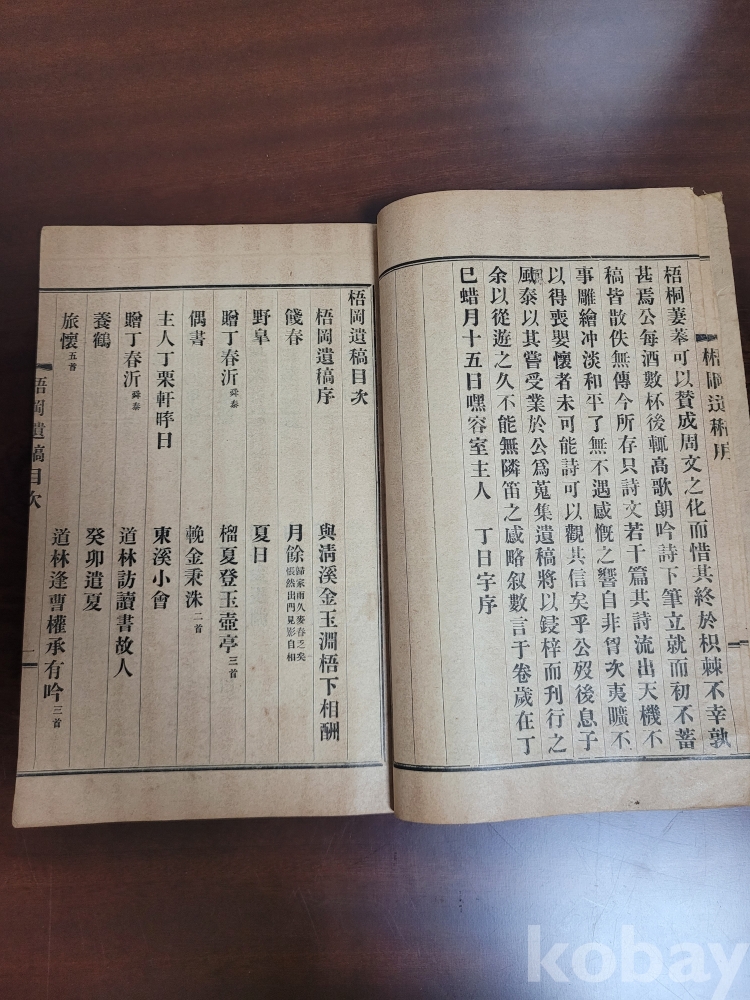 梧桐萋萋可以賛成周文之化而惜其終於枳棘不幸孰
甚焉公每酒數杯後輒高歌朗吟詩下筆立就而初不蓄
稿皆散佚無傳今所存只詩文若干篇其詩流出天機不
事雕繪冲淡和平了無不遇感慨之響自非胷次夷曠不
以得喪嬰懷者未可能詩可以觀其信矣乎公歿後息子
鳳泰以其甞受業於公爲蒐集遺稿將以鋟梓而刊行之
余以從遊之久不能無隣笛之感略叙數言于卷歲在丁
巳蜡月十五日嘿容室主人 丁日宇序
梧岡遺稿目次
梧岡遺稿序 與淸溪金玉淵梧下相酬
餞春 月餘歸家雨久麥春乏矣悵然出門見影自相
野阜 夏日
贈丁春沂舜泰 榴夏登玉壺亭三首
偶書 輓金秉洙二首
主人丁栗軒晬日 東溪小會
贈丁春沂舜泰 道林訪讀書故人
養鶴 癸卯遣夏
旅懷五首 道林逢曹權承有吟三首
梧岡遺稿目次 一
kobay